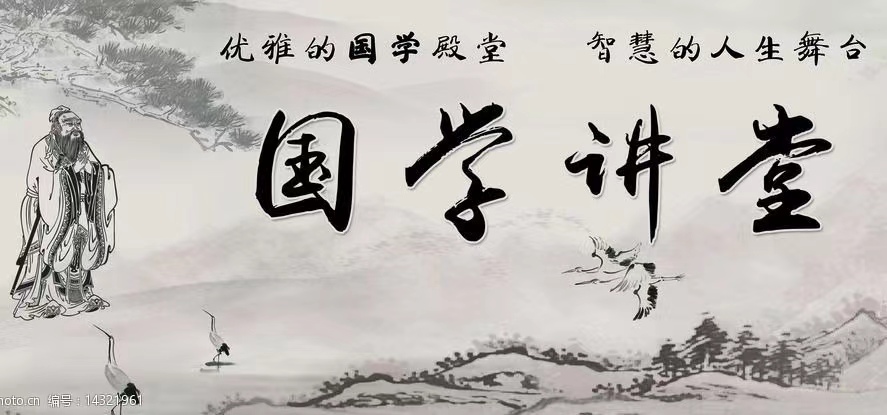 优雅的国学殿堂 智慧的人生舞台
国学讲堂
hoto.cn 编号：14321961